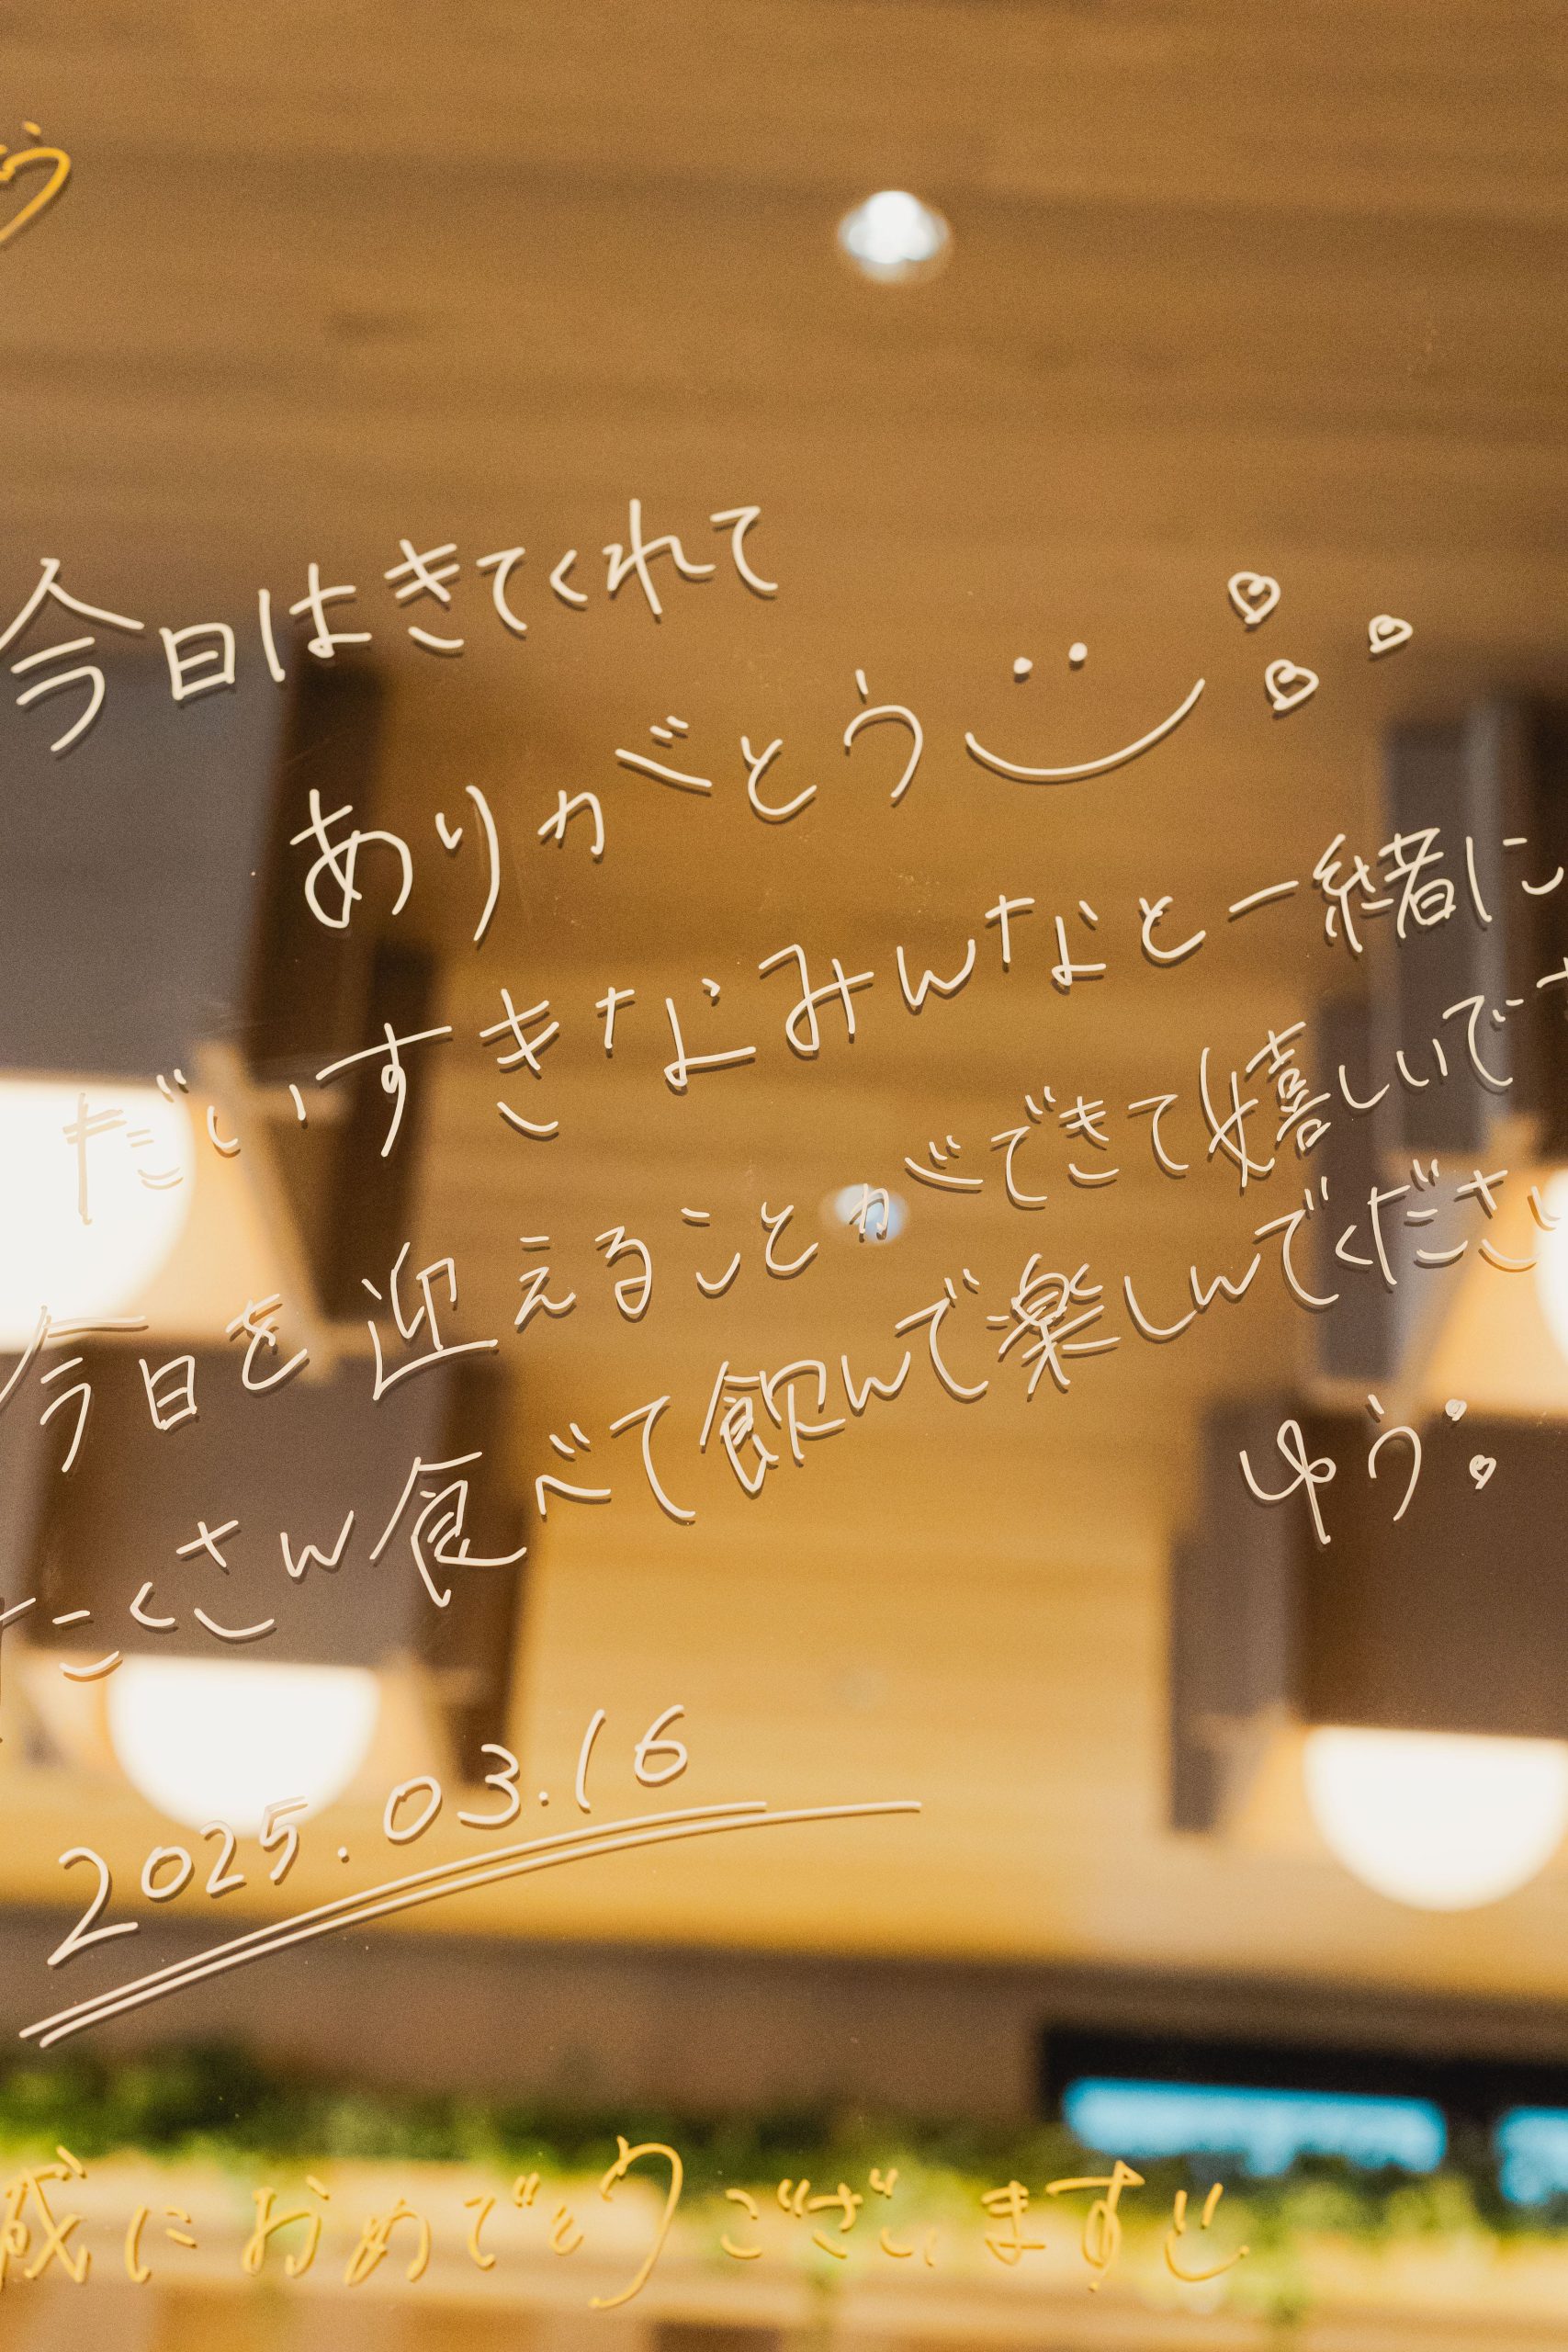 う
今日はきてくれて
ありがとう
だいすきなみんなと一緒に
今日を迎えることができて嬉しいです
たくさん食べて飲んで楽しんでください
ゆう
2025.03.16
誠におめでとうございます